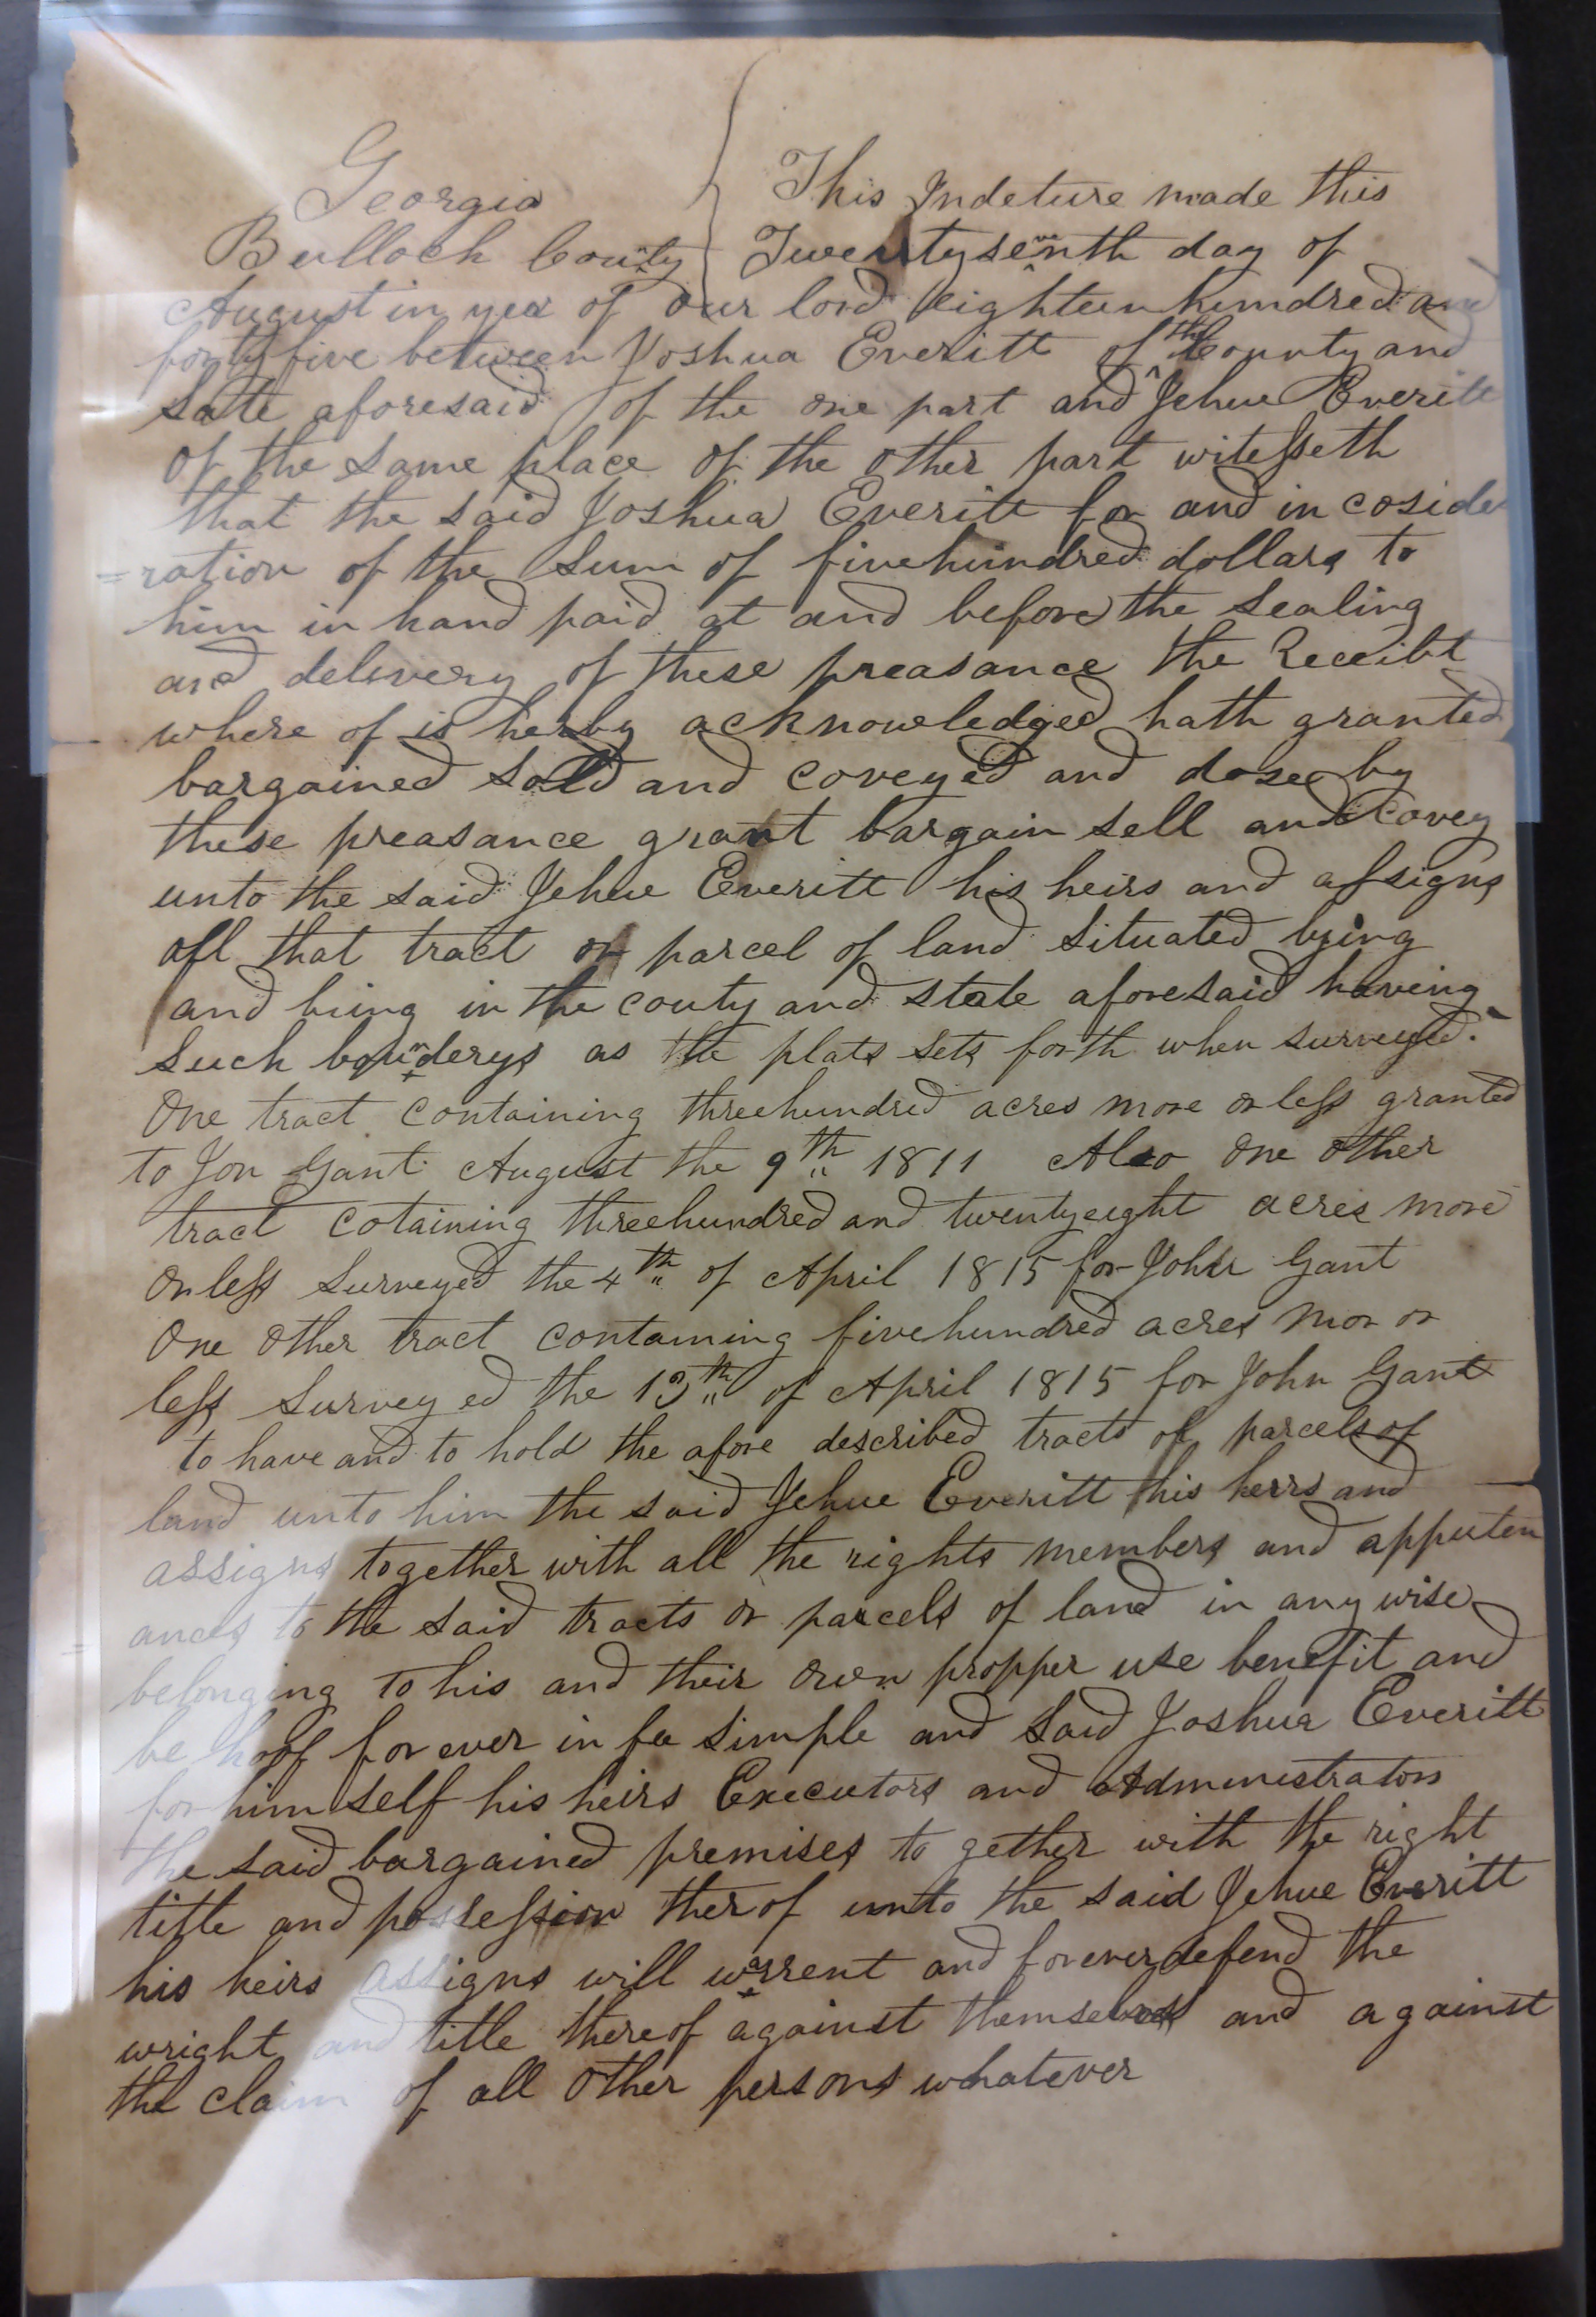 Georgia } This Indeture made this
Bulloch County } Twentyseventh day of
August in year of our lord eighteen hundred and
forty five between Joshua Everitt of the County and
Sate aforesaid of the one part and Jehue Everitt
of the same place of the other part witesseth
that the said Joshua Everitt for and in coside
=ration of the sum of fivehundred dollars to
him in hand paid at and before the sealing
and delivery of these preasance the Receibt
where of is herby acknowledged hath granted
bargained sold and coveyed and dose by
these preasance grant bargain sell and Covey
unto the said Jehue Everitt his heirs and assigns
all that tract or parcel of land situated lying
and biing in the couty and state aforesaid having
such bounderys as the plats sets forth when surveyed.
One tract containing threehundred acres more or less granted
to Jon Gant August the 9th 1811 Also One Other
tract cotaining threehundred and twentyeight acres more
or less surveyed the 4th of April 1815 for John Gant
One Other tract containing fivehundred acres mor or
less surveyed the 13th of April 1815 for John Gant
to have and to hold the afore described tracts of parcels of
land unto him the said Jehue Everitt his heirs and
assigns together with all the rights members and apputen
ances to the said tracts or parcels of land in any wise
belonging to his and their own propper use benefit and
be hoof for ever in fee simple and said Joshua Everitt
for himself his heirs Executors and Administrators
the said bargained premises to gether with the right
title and possession therof unto the said Jehue Everitt
his heirs assigns will warrent and forever defend the
wright and title thereof against themselves and against
the claim of all other persons whatever